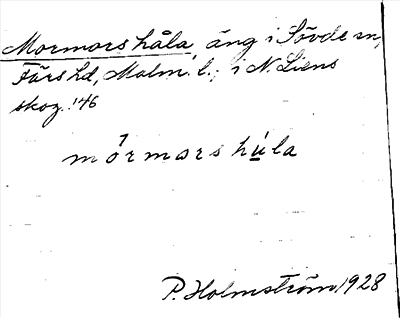 Mormors håla, äng i Sövde sn,
Färs hd, Malm. l.; i N. Liens
skog. '46
mórmars hu̲la
P. Holmström 1928